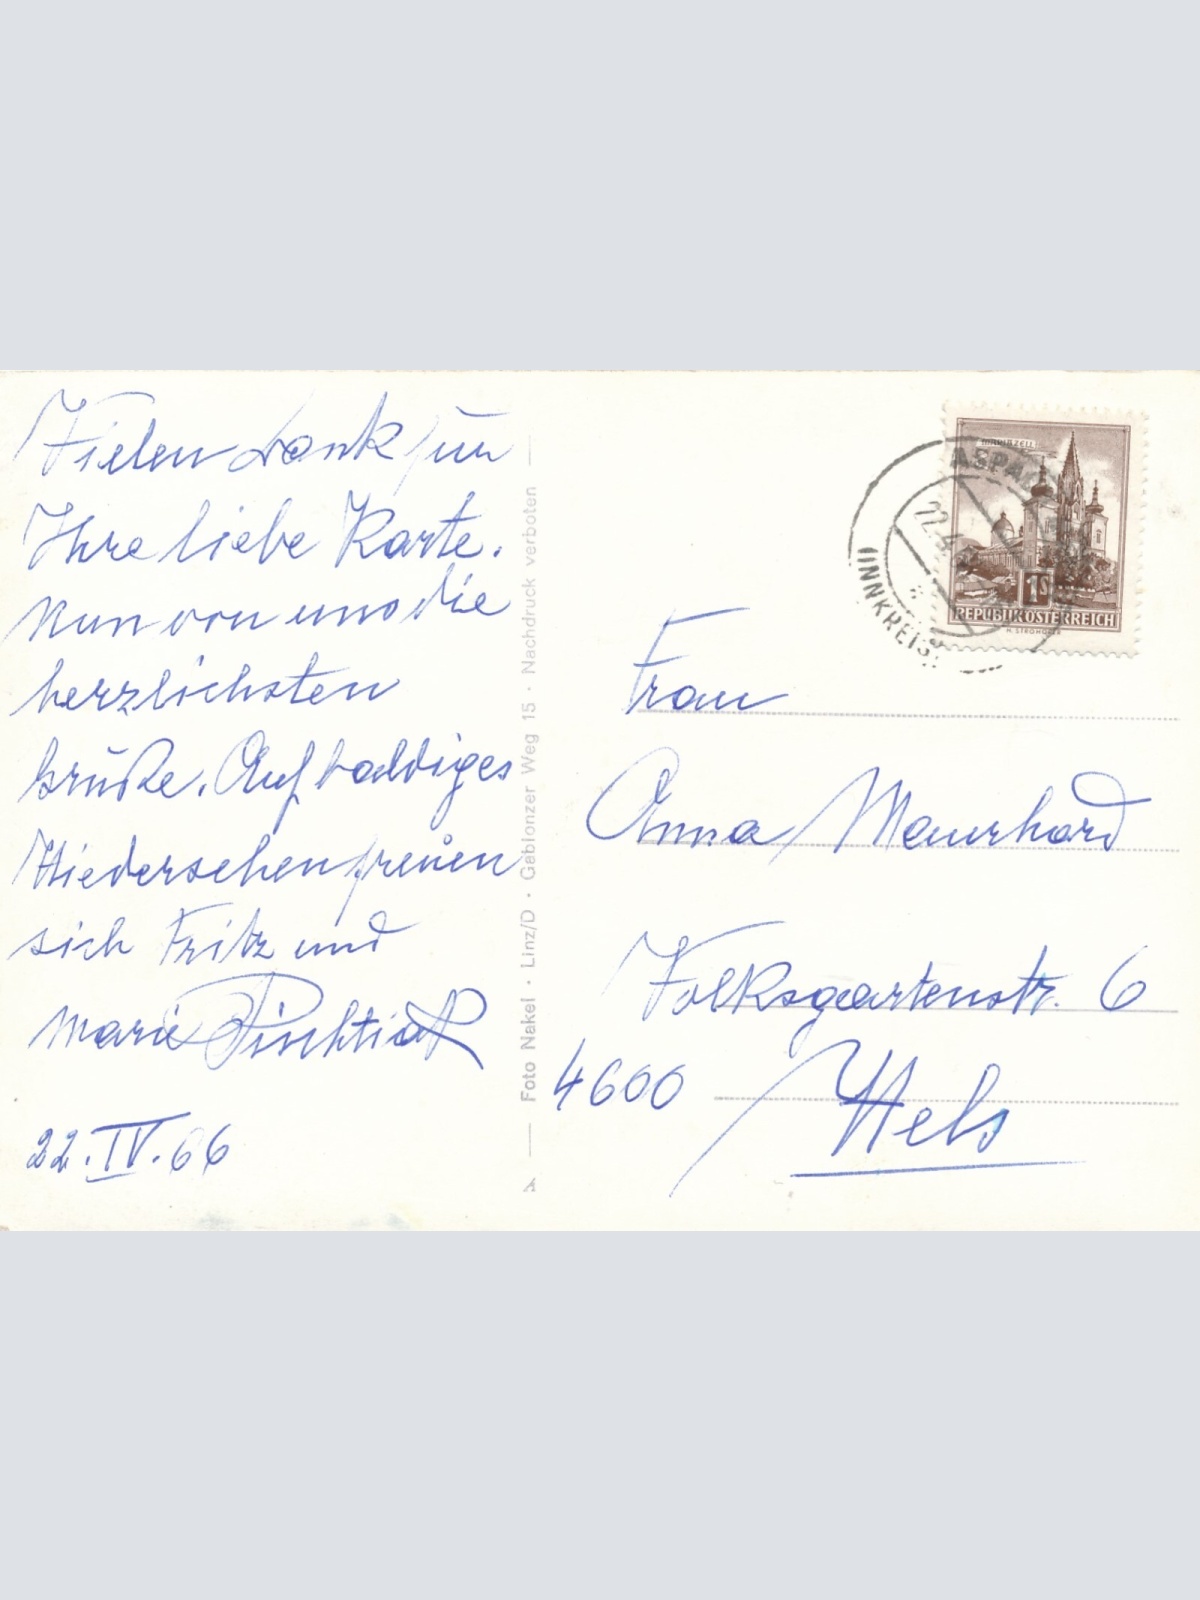 Vielen Dank für
Ihre liebe Karte.
Nun von uns die
herzlichsten
Grüße. Auf baldiges
Wiedersehen freuen
sich Fritz und
Marie
22.IV.66
Foto Nakel · Linz/D · Gablonzer Weg 15 · Nachdruck verboten
MARIAZELL
1S
REPUBLIK ÖSTERREICH
H. STROHOFER
ASPACH
22.4.
INNKREIS
Frau
Anna Maurhard
Volksgartenstr. 6
4600 Wels